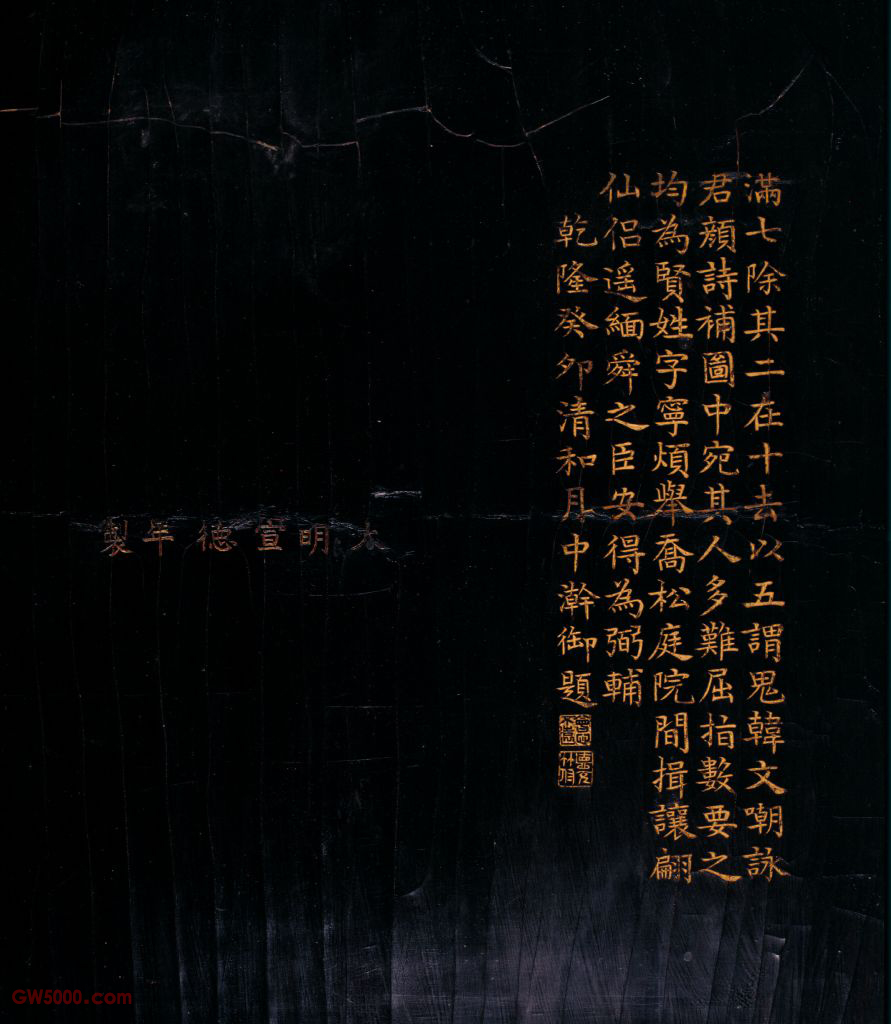 滿七除其二在十去以五謂鬼韓文嘲詠
君顔詩補圖中宛其人多難屈指數要之
均為賢姓字寧煩舉喬松庭院間揖讓翩
仙侶遥緬舜之臣安得為弼輔
乾隆癸卯清和月中澣御題
會心不遠
悳充符
大明宣德年製
GW5000.com